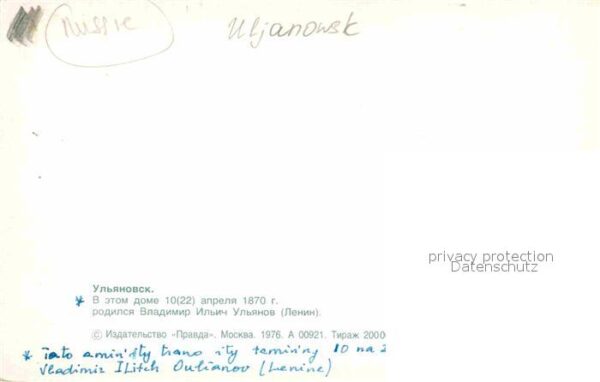 Russie
Uljanowsk
privacy protection
Datenschutz
Ульяновск.
* В этом доме 10(22) апреля 1870 г.
родился Владимир Ильич Ульянов (Ленин).
© Издательство «Правда». Москва. 1976. А 00921. Тираж 2000
* Tato amin'ity trano ity taminny 10 na 2
Vladimir ILitch Oulianov (Lenine)